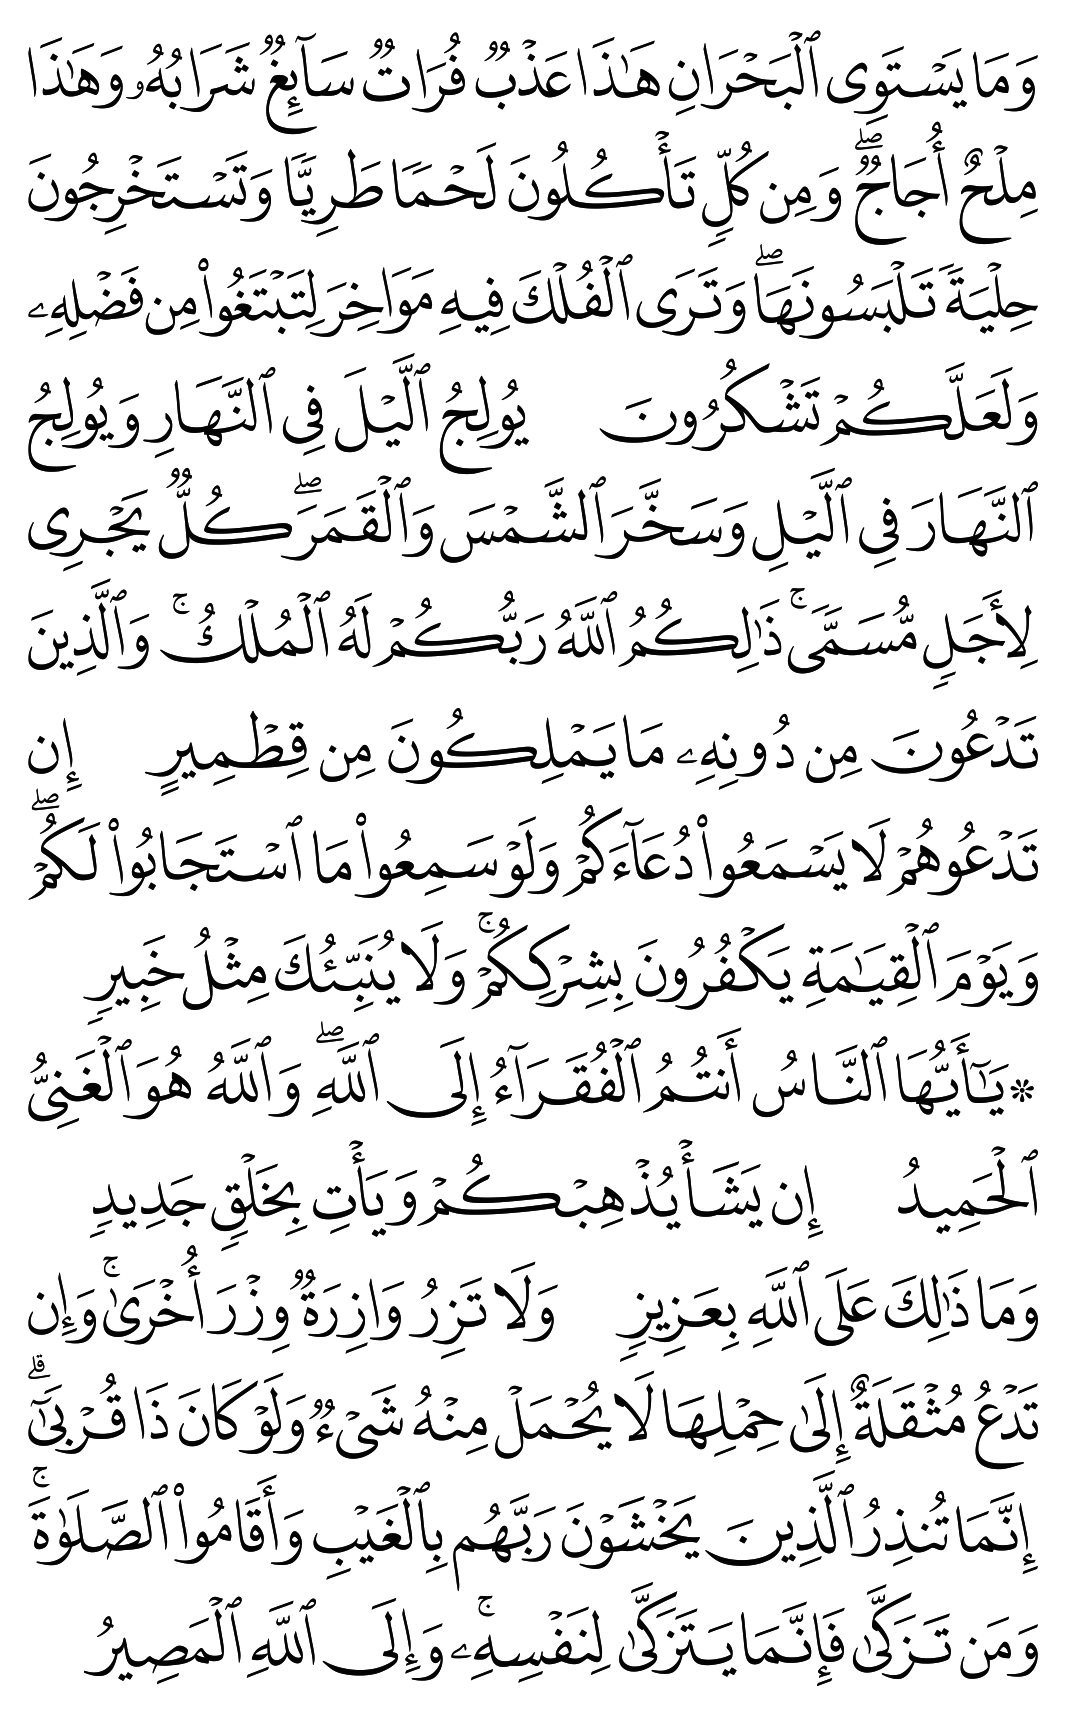 وَمَا يَسۡتَوِي ٱلۡبَحۡرَانِ هَٰذَا عَذۡبٞ فُرَاتٞ سَآئِغٞ شَرَابُهُۥ وَهَٰذَا
مِلۡحٌ أُجَاجٞۖ وَمِن كُلّٖ تَأۡكُلُونَ لَحۡمٗا طَرِيّٗا وَتَسۡتَخۡرِجُونَ
حِلۡيَةٗ تَلۡبَسُونَهَاۖ وَتَرَى ٱلۡفُلۡكَ فِيهِ مَوَاخِرَ لِتَبۡتَغُواْ مِن فَضۡلِهِۦ
وَلَعَلَّكُمۡ تَشۡكُرُونَ يُولِجُ ٱلَّيۡلَ فِي ٱلنَّهَارِ وَيُولِجُ
ٱلنَّهَارَ فِي ٱلَّيۡلِ وَسَخَّرَ ٱلشَّمۡسَ وَٱلۡقَمَرَۖ كُلّٞ يَجۡرِي
لِأَجَلٖ مُّسَمّٗىۚ ذَٰلِكُمُ ٱللَّهُ رَبُّكُمۡ لَهُ ٱلۡمُلۡكُۚ وَٱلَّذِينَ
تَدۡعُونَ مِن دُونِهِۦ مَا يَمۡلِكُونَ مِن قِطۡمِيرٍ إِن
تَدۡعُوهُمۡ لَا يَسۡمَعُواْ دُعَآءَكُمۡ وَلَوۡ سَمِعُواْ مَا ٱسۡتَجَابُواْ لَكُمۡۖ
وَيَوۡمَ ٱلۡقِيَٰمَةِ يَكۡفُرُونَ بِشِرۡكِكُمۡۚ وَلَا يُنَبِّئُكَ مِثۡلُ خَبِيرٖ
* يَٰٓأَيُّهَا ٱلنَّاسُ أَنتُمُ ٱلۡفُقَرَآءُ إِلَى ٱللَّهِۖ وَٱللَّهُ هُوَ ٱلۡغَنِيُّ
ٱلۡحَمِيدُ إِن يَشَأۡ يُذۡهِبۡكُمۡ وَيَأۡتِ بِخَلۡقٖ جَدِيدٖ
وَمَا ذَٰلِكَ عَلَى ٱللَّهِ بِعَزِيزٖ وَلَا تَزِرُ وَازِرَةٞ وِزۡرَ أُخۡرَىٰۚ وَإِن
تَدۡعُ مُثۡقَلَةٌ إِلَىٰ حِمۡلِهَا لَا يُحۡمَلۡ مِنۡهُ شَيۡءٞ وَلَوۡ كَانَ ذَا قُرۡبَىٰٓۗ
إِنَّمَا تُنذِرُ ٱلَّذِينَ يَخۡشَوۡنَ رَبَّهُم بِٱلۡغَيۡبِ وَأَقَامُواْ ٱلصَّلَوٰةَۚ
وَمَن تَزَكَّىٰ فَإِنَّمَا يَتَزَكَّىٰ لِنَفۡسِهِۦۚ وَإِلَى ٱللَّهِ ٱلۡمَصِيرُ